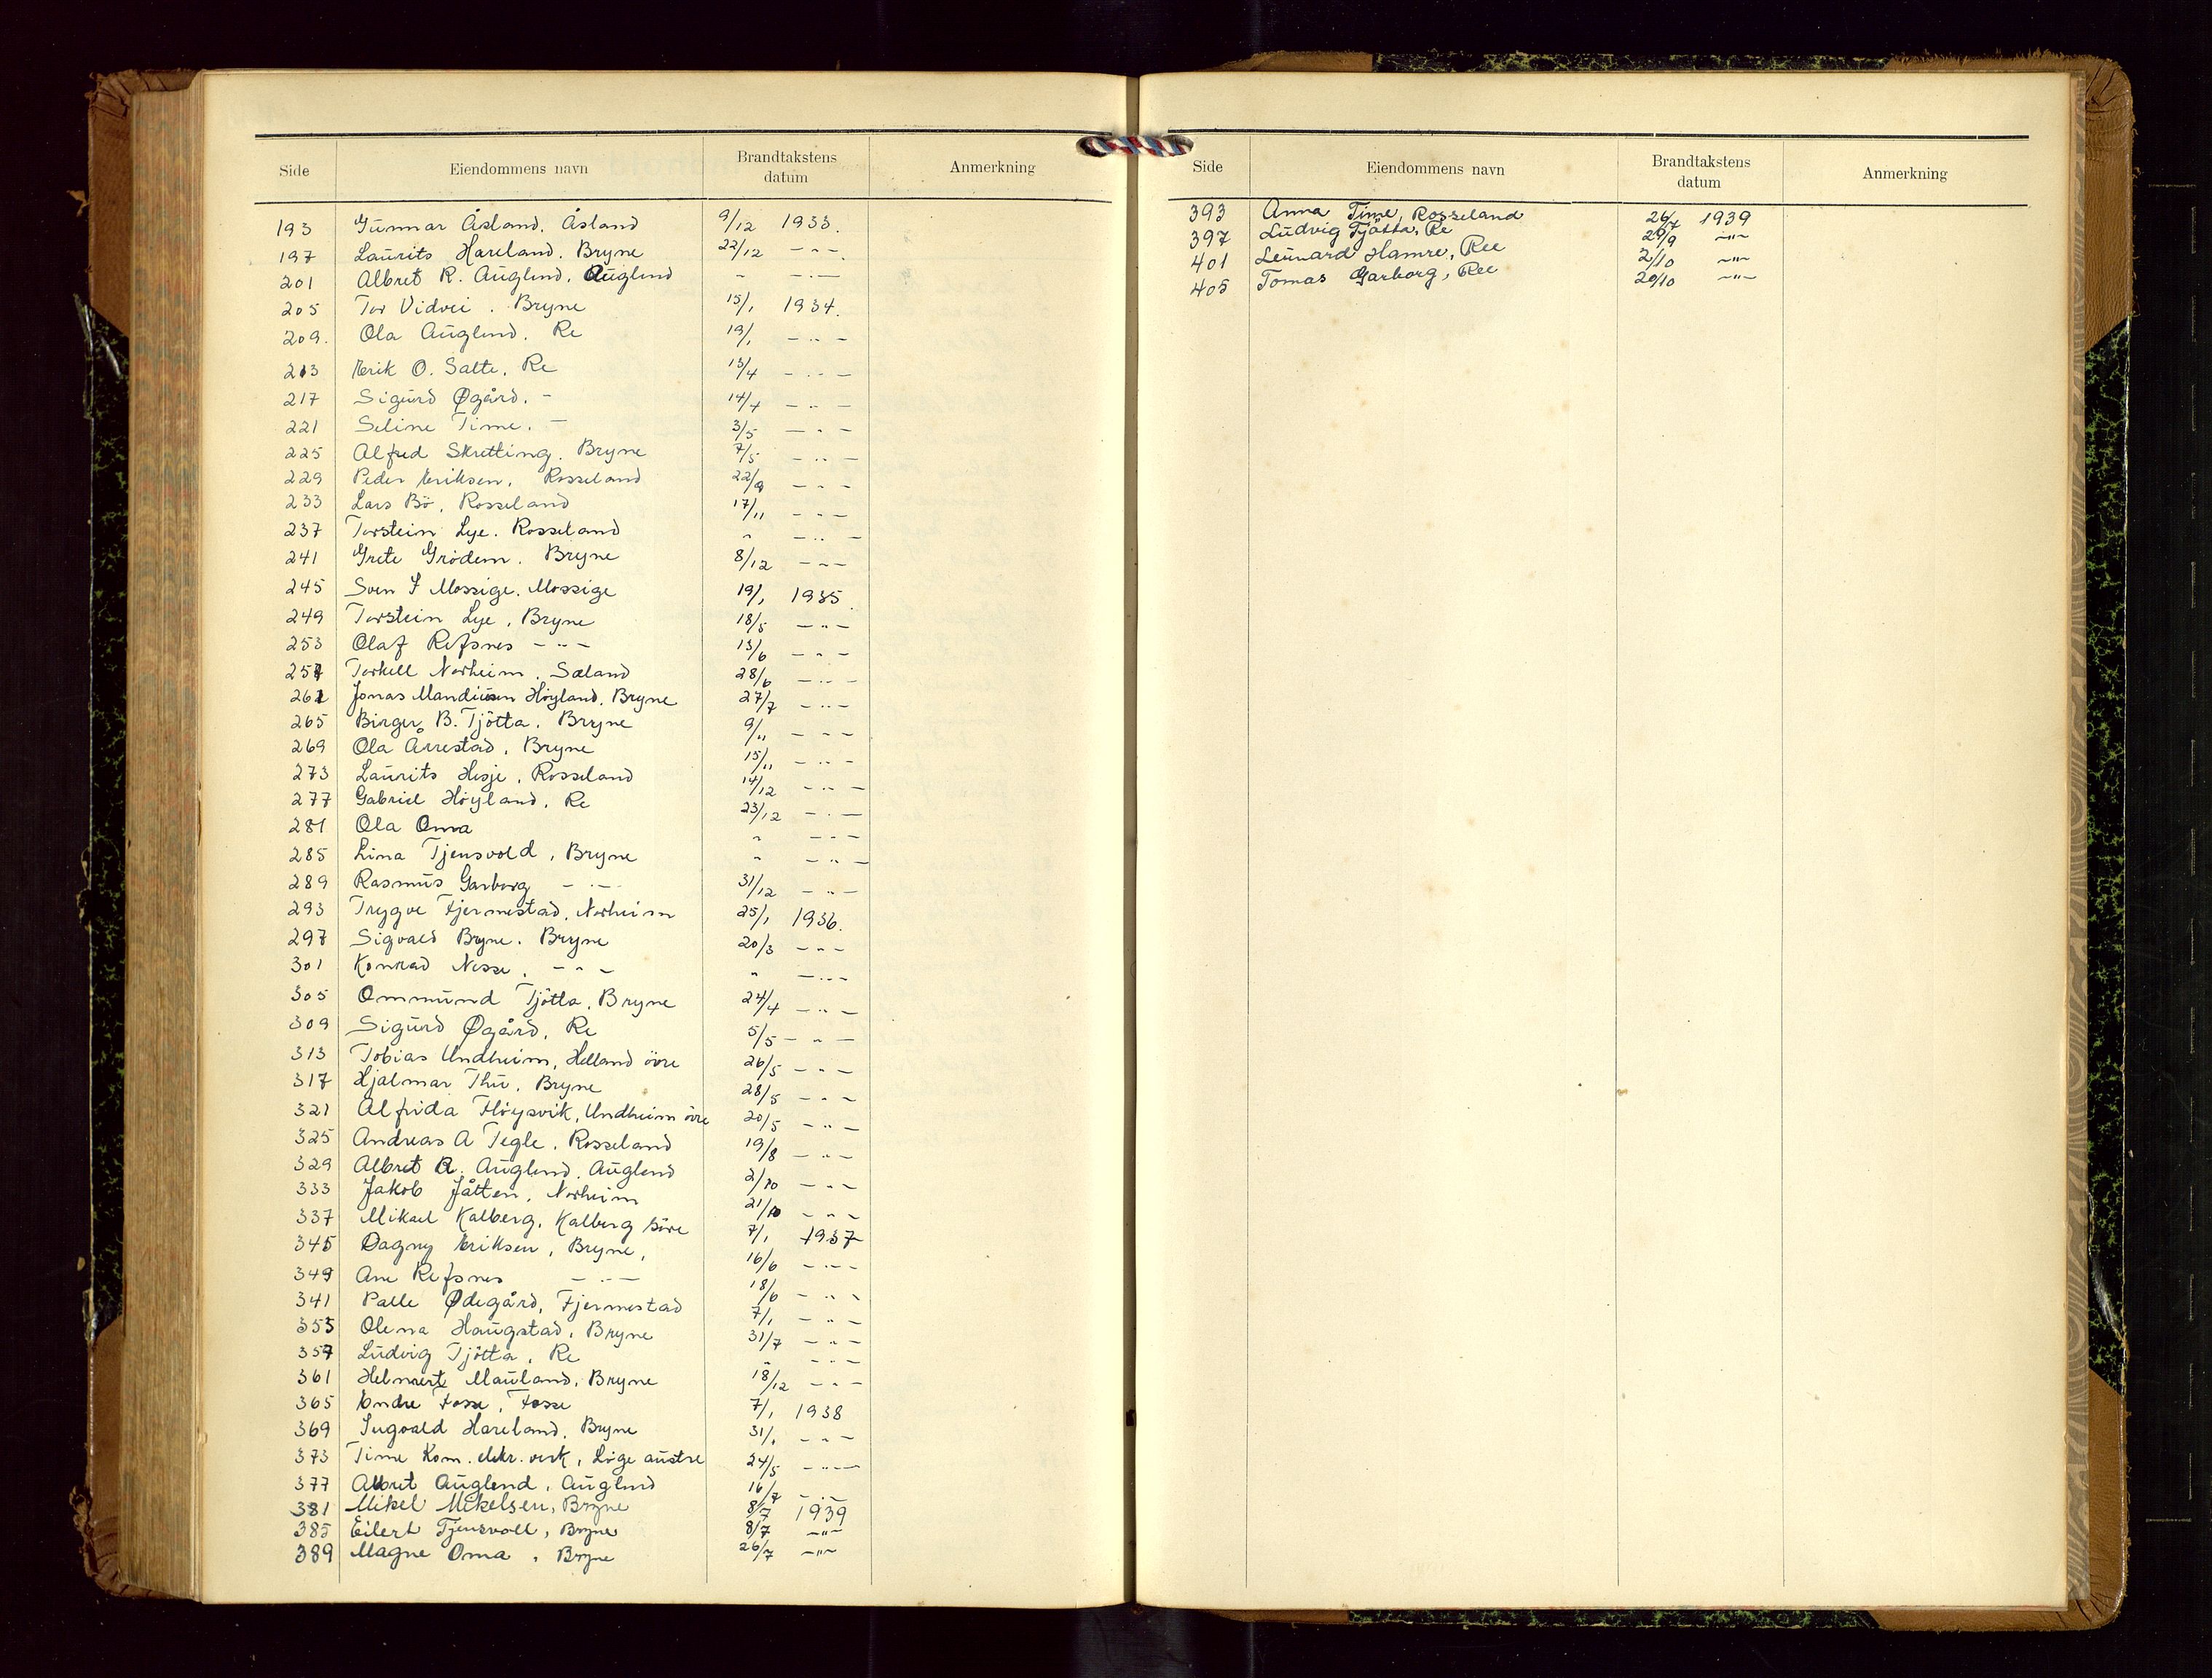 Side Eiendommens navn Brandtakstens datum Anmerkning
193 Gunnar Åsland. Åsland 9/12 1933.
197 Laurits Hareland. Bryne 22/12 - " -
201 Albret R. Auglend. Auglend " - " -
205 Tor Vidvei. Bryne 15/1 1934.
209. Ola Auglend. Re 19/1 - " -
213 Erik O. Salte. Re 13/4 - " -
217 Sigurd Øgård. - 14/4 - " -
221 Seline Time. - 3/5 - " -
225 Alfred Skretting. Bryne 7/5 - " -
229 Peder Eriksen. Rosseland 22/9 - " -
233 Lars Bö. Rosseland 17/11 - " -
237 Torstein Lye. Rosseland " - " -
241 Grete Grödem. Bryne 8/12 - " -
245 Sven S Mossige. Mossige 19/1 1935.
249 Torstein Lye, Bryne 18/5 - " -
253 Olaf Refsnes - " - 13/6 - " -
257 Torkell Norheim. Sæland 28/6 - " -
261 Jonas Mandiusen Höyland. Bryne 27/7 - " -
265 Birger B. Tjötta. Bryne 9/11 - " -
269 Ola Årrestad, Bryne 15/11 - " -
273 Laurits Hesje, Rosseland 14/12 - " -
277 Gabriel Höyland, Re 23/12 - " -
281 Ola Oma " - " -
285 Lina Tjensvold, Bryne " - " -
289 Rasmus Garborg - " - 31/12 - " -
293 Trygve Fjermestad, Norheim 25/1 1936.
297 Sigvald Bryne. Bryne 20/3 - " -
301 Konrad Nesse. - " - " - " -
305 Ommund Tjötta, Bryne 24/4 - " -
309 Sigurd Øgård, Re 5/5 - " -
313 Tobias Undheim, Helland övre 26/5 - " -
317 Hjalmar Thu, Bryne 28/5 - " -
321 Alfrida Höysvik, Undheim övre 20/5 - " -
325 Andreas A Tegle. Rosseland 19/8 - " -
329 Albret R. Auglend. Auglend 2/10 - " -
333 Jakob Jåtten, Norheim 21/10 - " -
337 Mikael Kalberg, Kalberg söre 7/1 1937
345 Dagny Eriksen, Bryne, 16/6 - " -
349 Ane Refsnes - " - 18/6 - " -
341 Palle Ødegård, Fjermestad 7/1 - " -
353 Olena Haugstad, Bryne 31/7 - " -
357 Ludvig Tjötta, Re " - " -
361 Helmert Mauland, Bryne 18/12 - " -
365 Endre Fosse, Fosse 7/1 1938
369 Ingvald Hareland, Bryne 31/1 - " -
373 Time Kom. elekr. verk, Lige austre 24/5 - " -
377 Albret Auglend, Auglend 16/7 - " -
381 Mikel Mikelsen, Bryne 8/7 1939
385 Eilert Tjensvoll, Bryne 8/7 - " -
389 Magne Oma, Bryne 26/7 - " -
Side Eiendommens navn Brandtakstens datum Anmerkning
393 Anna Time, Rosseland 26/7 1939
397 Ludvig Tjötta, Re 29/9 - " -
401 Lennard Hamre, Ree 2/10 - " -
405 Tomas Garborg, Ree 20/10 - " -